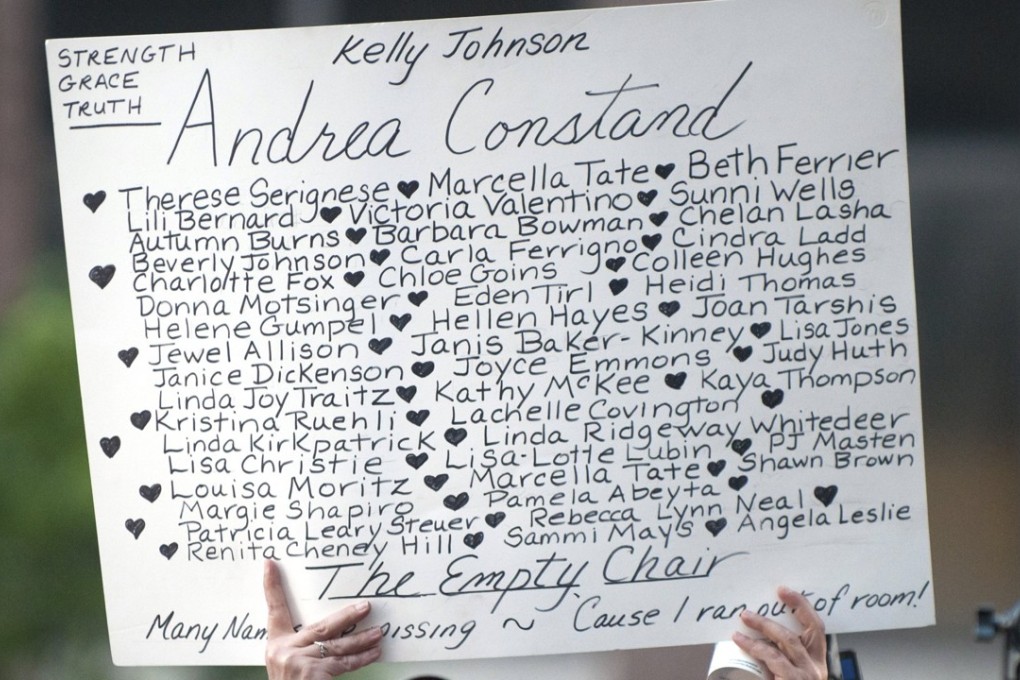 STRENGTH
GRACE
TRUTH
Kelly Johnson
Andrea Constand
Therese Serignese ♥ Marcella Tate ♥ Beth Ferrier
Lili Bernard ♥ Victoria Valentino ♥ Sunni Wells
Autumn Burns ♥ Barbara Bowman ♥ Chelan Lasha
Beverly Johnson ♥ Carla Ferrigno ♥ Cindra Ladd
Charlotte Fox ♥ Chloe Goins ♥ Colleen Hughes
Donna Motsinger ♥ Eden Tirl ♥ Heidi Thomas
Helene Gumpel ♥ Hellen Hayes ♥ Joan Tarshis
Jewel Allison ♥ Janis Baker-Kinney ♥ Lisa Jones
Janice Dickenson ♥ Joyce Emmons ♥ Judy Huth
Linda Joy Traitz ♥ Kathy McKee ♥ Kaya Thompson
Kristina Ruehli ♥ Lachelle Covington ♥
Linda Kirkpatrick ♥ Linda Ridgeway Whitedeer
Lisa Christie ♥ Lisa-Lotte Lubin ♥ PJ Masten
Louisa Moritz ♥ Marcella Tate ♥ Shawn Brown
Margie Shapiro ♥ Pamela Abeyta ♥
Patricia Leary Steuer ♥ Rebecca Lynn Neal ♥
Renita Cheney Hill ♥ Sammi Mays ♥ Angela Leslie
The Empty Chair
Many missing ~ 'Cause I ran out of room!